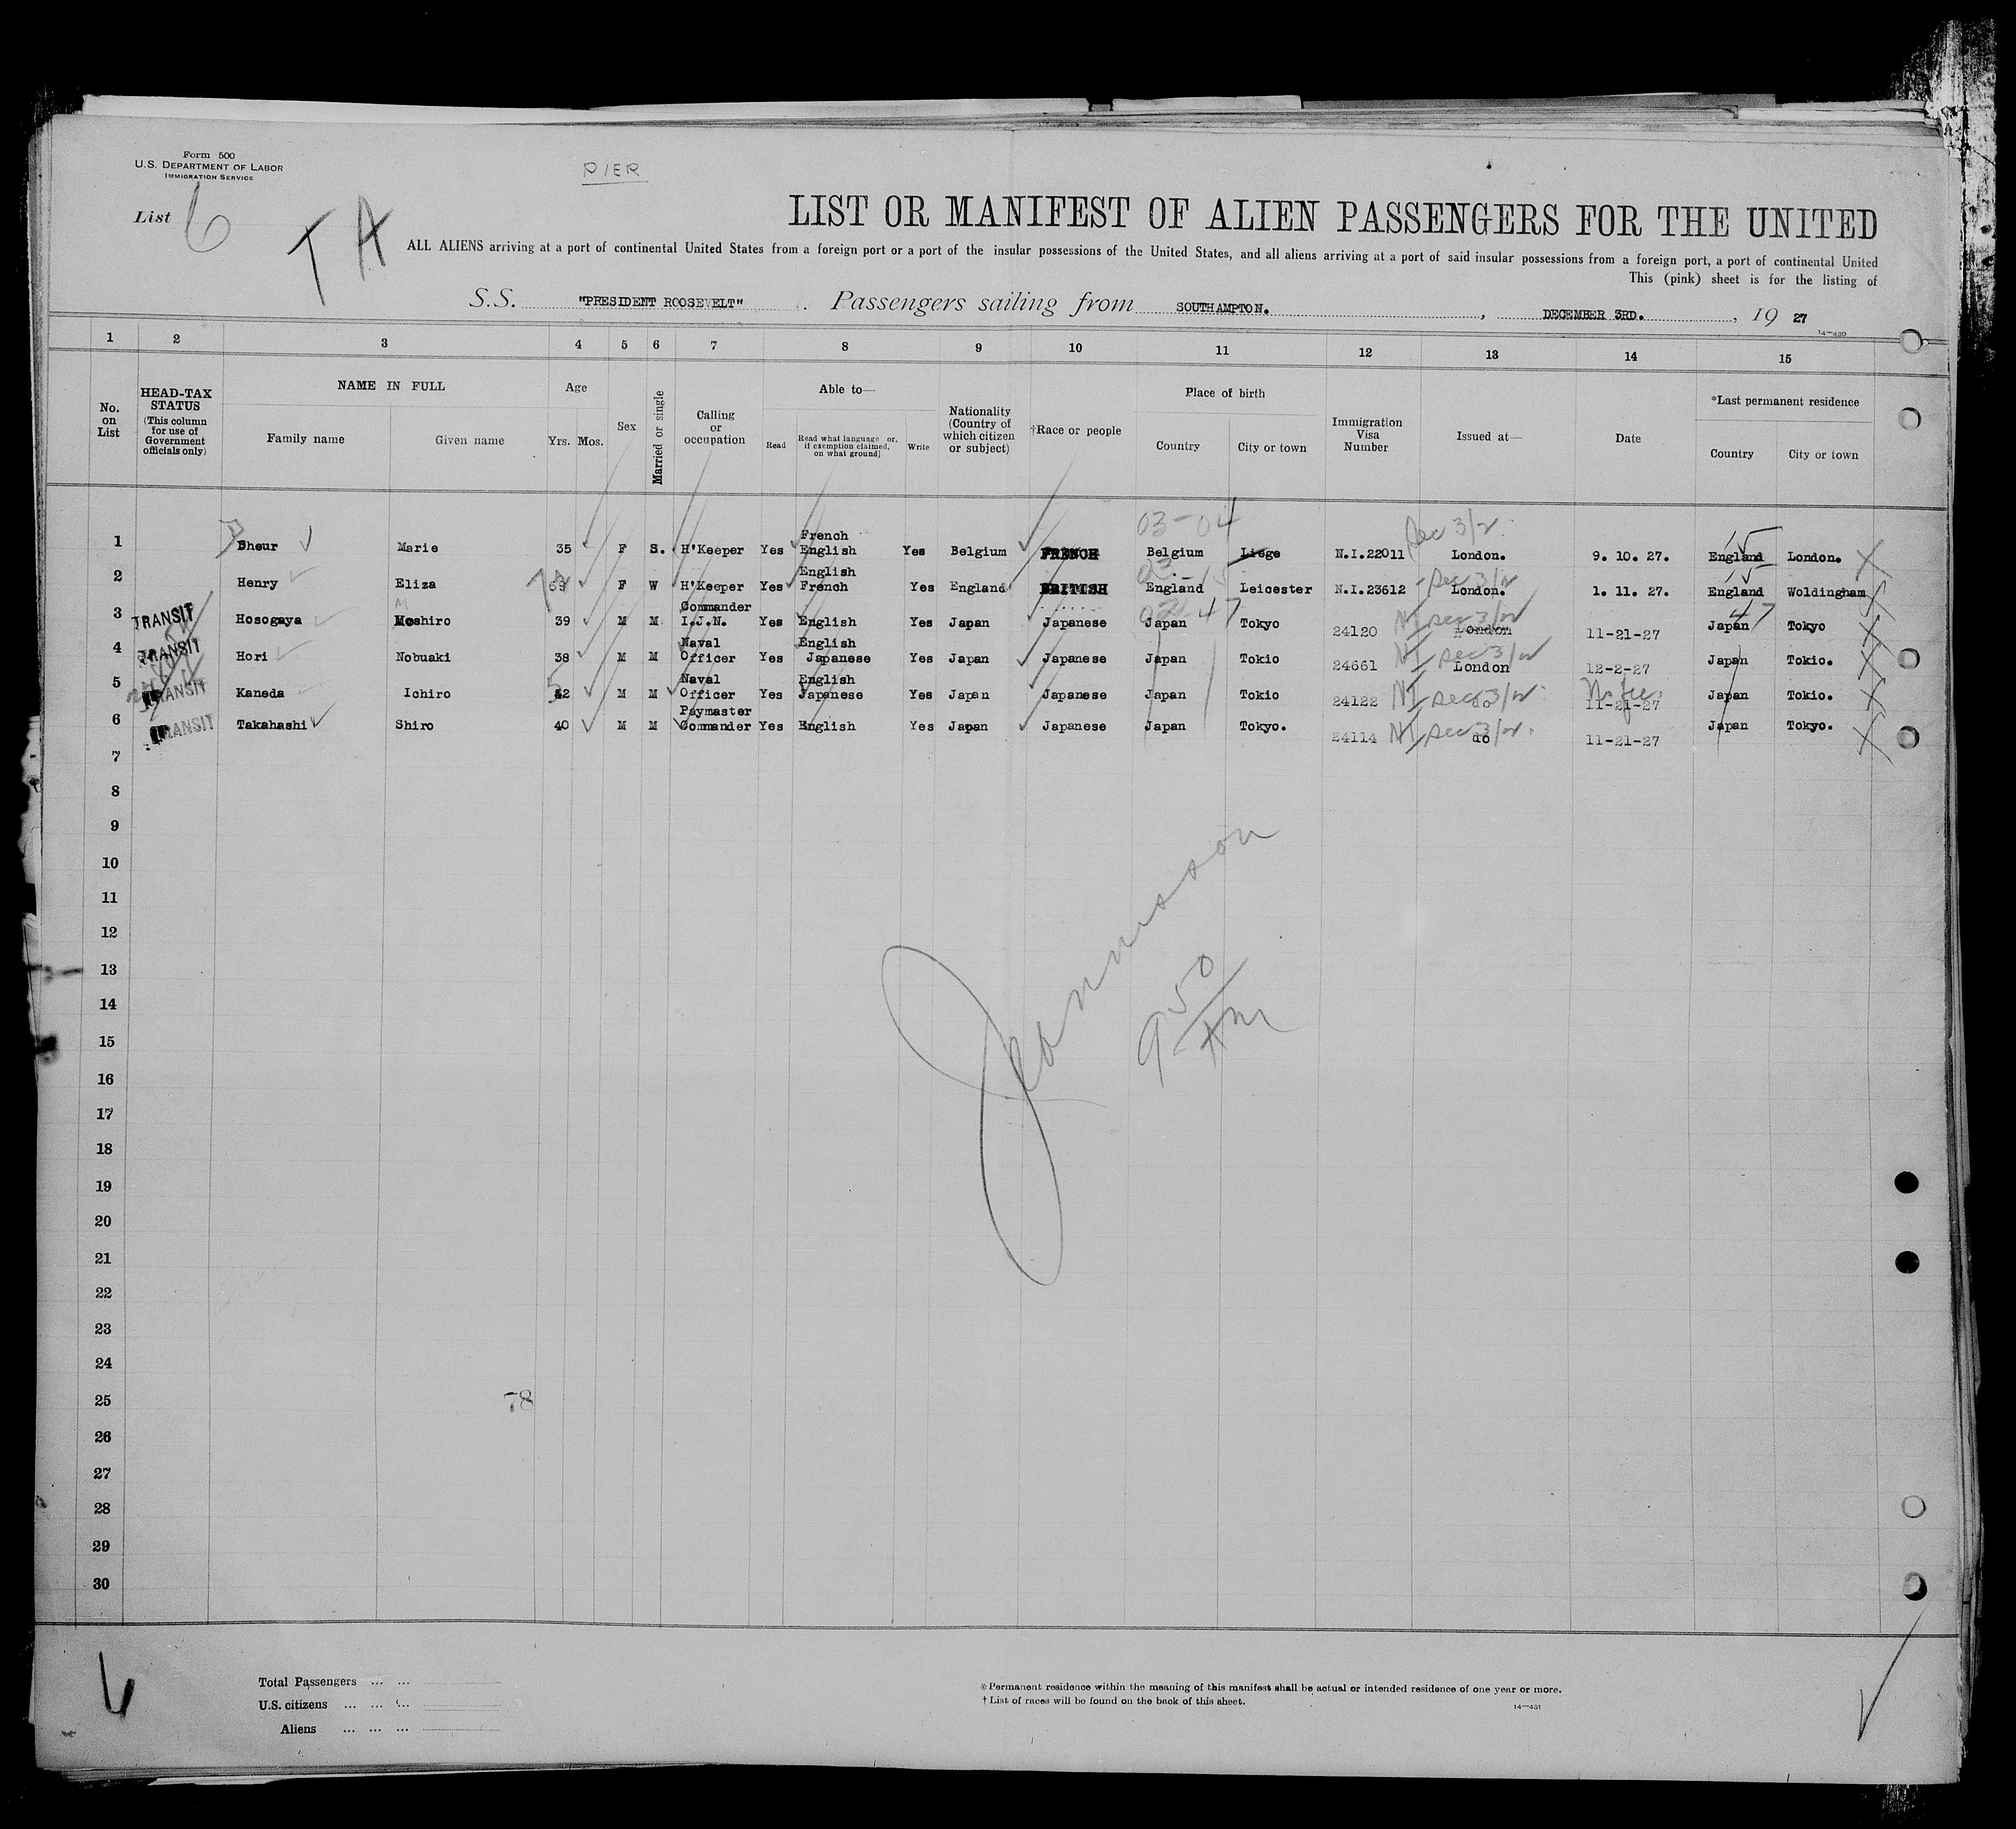 Form 500
U.S. DEPARTMENT OF LABOR
IMMIGRATION SERVICE
PIER
List 6
T A
LIST OR MANIFEST OF ALIEN PASSENGERS FOR THE UNITED
ALL ALIENS arriving at a port of continental United States from a foreign port or a port of the insular possessions of the United States, and all aliens arriving at a port of said insular possessions from a foreign port, a port of continental United
This (pink) sheet is for the listing of
S.S. "PRESIDENT ROOSEVELT" Passengers sailing from SOUTHAMPTON. , DECEMBER 3RD. , 19 27
14—430
1 2 3 4 5 6 7 8 9 10 11 12 13 14 15
No. on List
HEAD-TAX STATUS (This column for use of Government officials only)
NAME IN FULL
Family name Given name
Age
Yrs. Mos.
Sex
Married or single
Calling or occupation
Able to—
Read Read what language or, if exemption claimed, on what ground) Write
Nationality (Country of which citizen or subject)
†Race or people
Place of birth
Country City or town
Immigration Visa Number
Issued at—
Date
*Last permanent residence
Country City or town
03-04 Sec 3/2
1 Dheur Marie 35 F S. H'Keeper Yes French English Yes Belgium FRENCH Belgium Liege N.I.22011 London. 9. 10. 27. England London.
2 Henry Eliza F W H'Keeper Yes English French Yes England BRITISH England Leicester N.I.23612 Sec 3/2 London. 1. 11. 27. England Woldingham
3 TRANSIT Hosogaya Moshiro 39 M M Commander I.J.N. Yes English Yes Japan Japanese Japan Tokyo 24120 NI Sec 3/2 London 11-21-27 Japan Tokyo
4 TRANSIT Hori Nobuaki 38 M M Naval Officer Yes English Japanese Yes Japan Japanese Japan Tokio 24661 NI Sec 3/2 London 12-2-27 Japan Tokio.
5 TRANSIT Kaneda Ichiro 42 M M Naval Officer Yes English Japanese Yes Japan Japanese Japan Tokio 24122 NI Sec 3/2 do 11-21-27 Japan Tokio.
6 TRANSIT Takahashi Shiro 40 M M Paymaster Commander Yes English Yes Japan Japanese Japan Tokyo. 24114 NI Sec 3/2 do 11-21-27 Japan Tokyo.
7
8
9
10
11
12
13
14
15
16
17
18
19
20
21
22
23
24
25
26
27
28
29
30
9 50 AM
78
Total Passengers ... ...
U.S. citizens ... ... ...
Aliens ... ... ...
*Permanent residence within the meaning of this manifest shall be actual or intended residence of one year or more.
†List of races will be found on the back of this sheet.
14—431